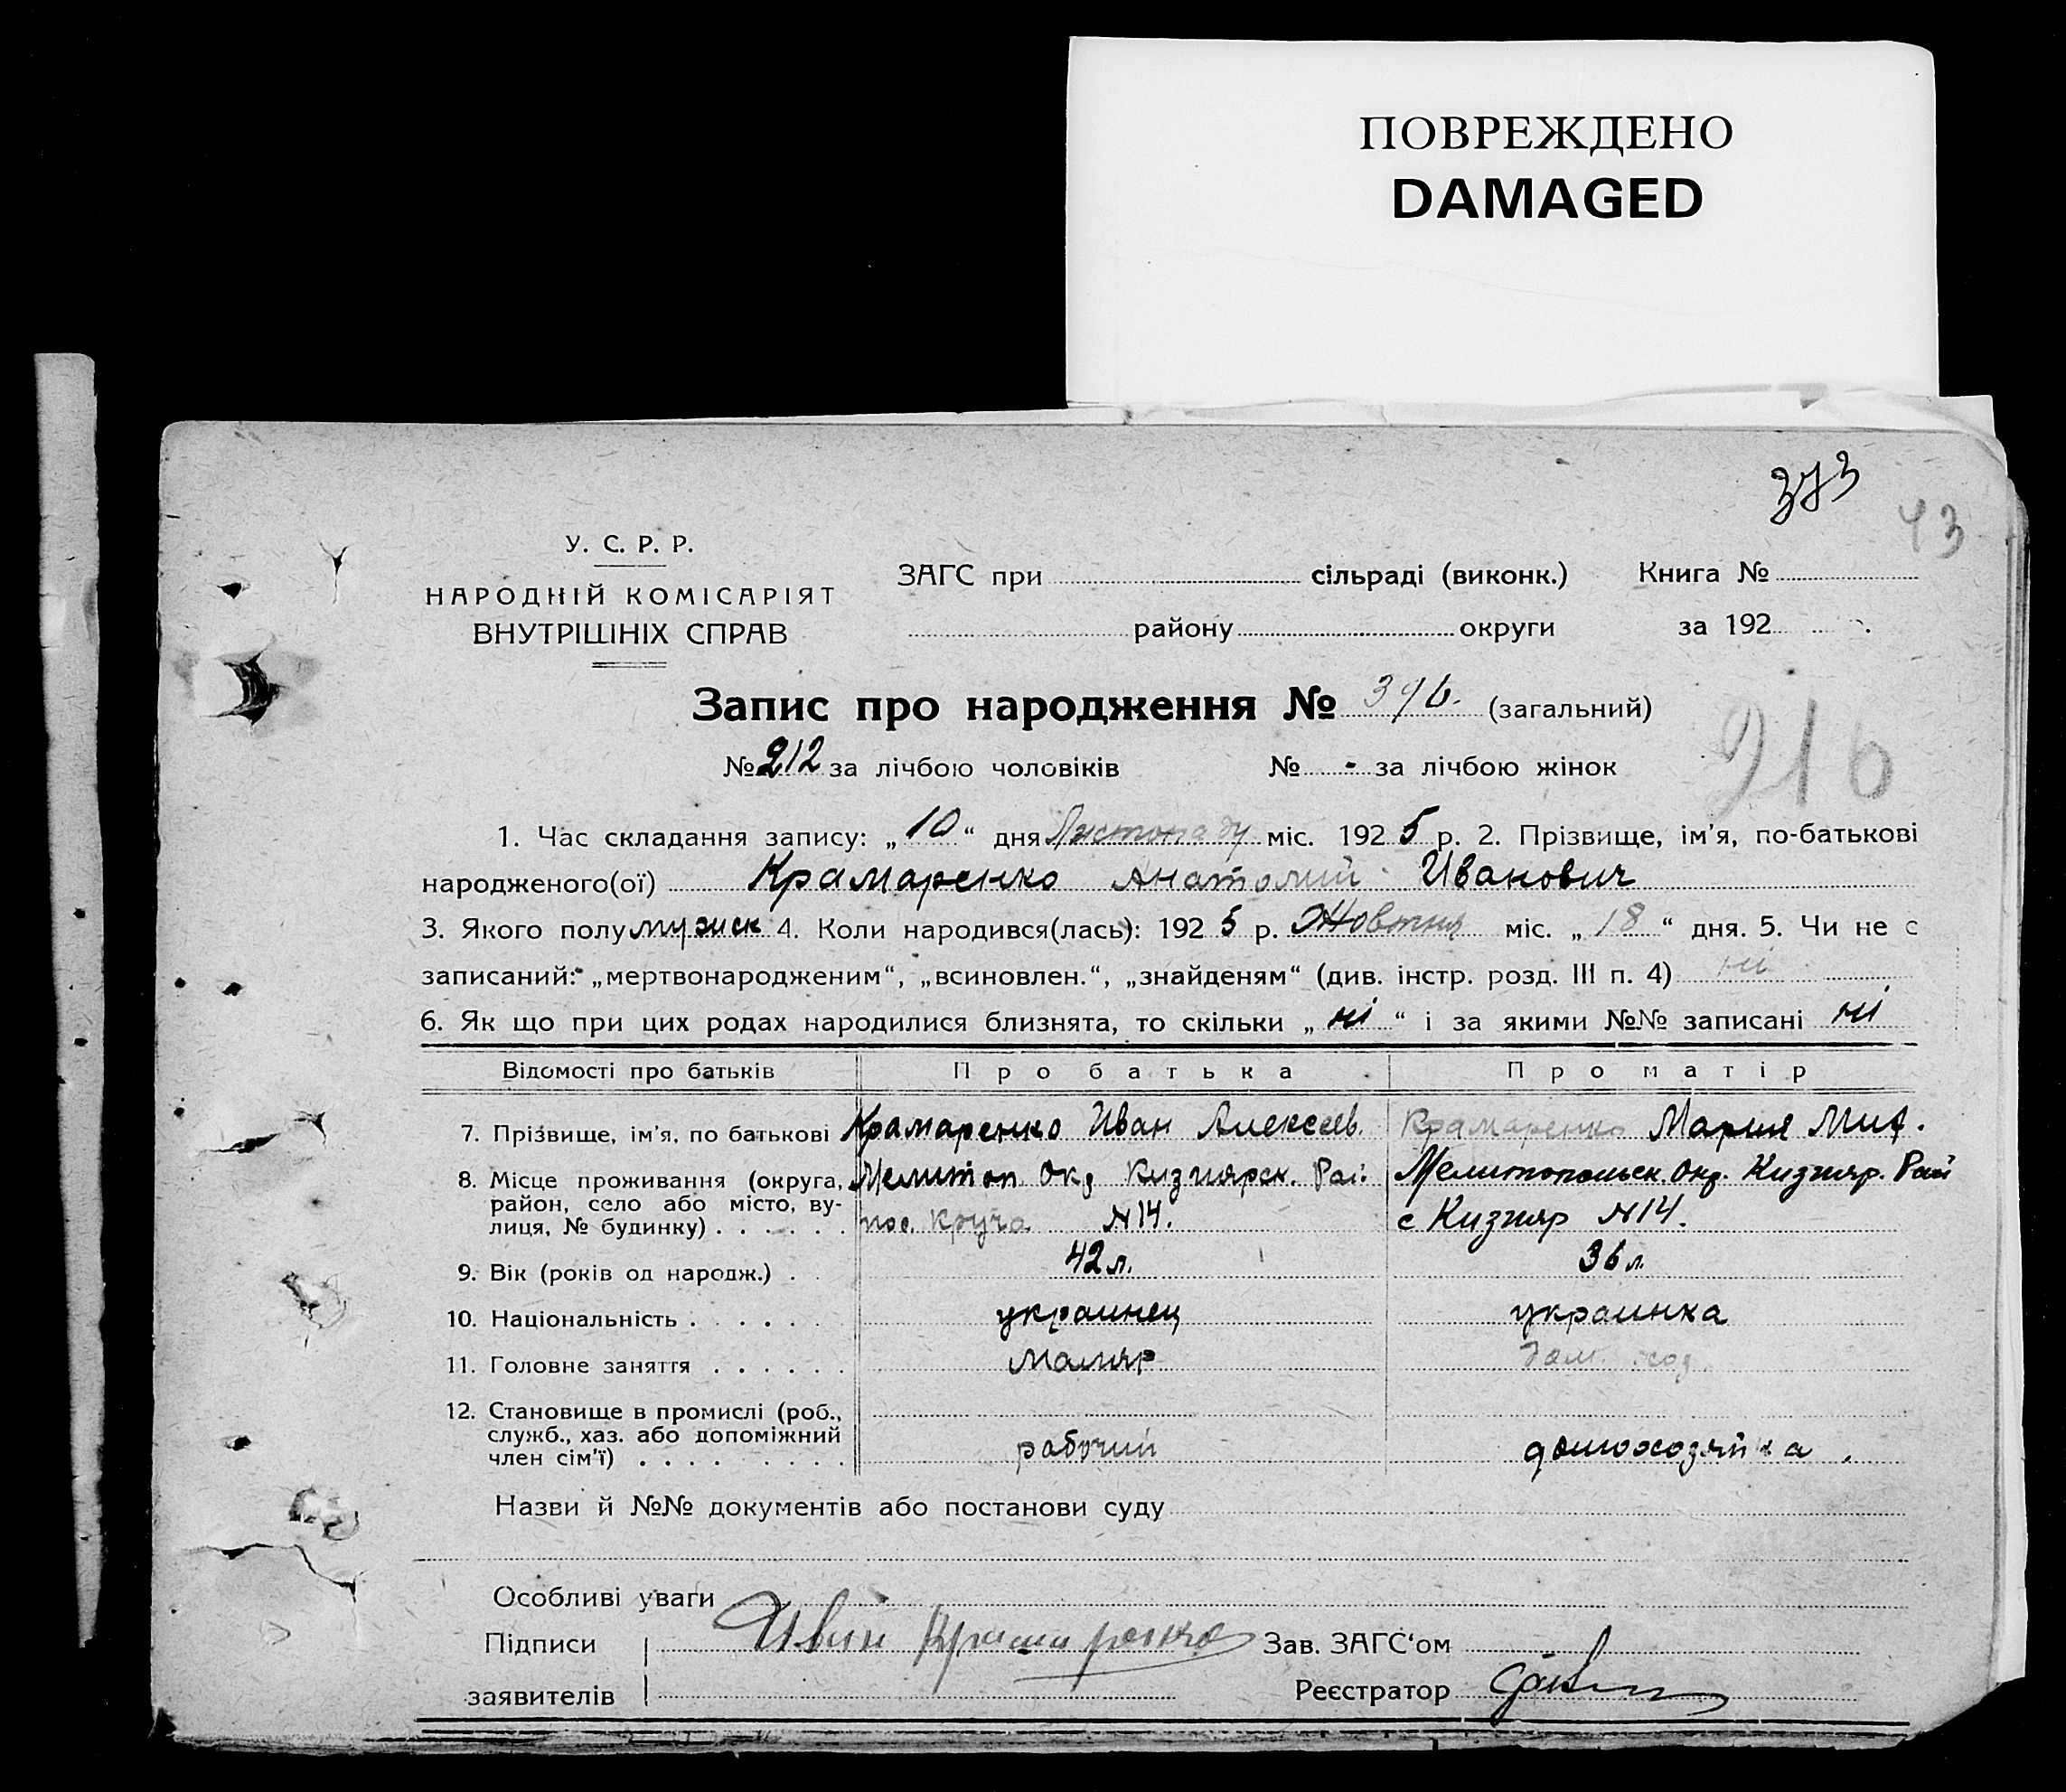 ПОВРЕЖДЕНО
DAMAGED
373
43
У. С. Р. Р.
НАРОДНІЙ КОМІСАРІЯТ
ВНУТРІШНІХ СПРАВ
ЗАГС при сільраді (виконк.) Книга №
району округи за 192 .
Запис про народження № 396. (загальний)
216
№ 212 за лічбою чоловіків № - за лічбою жінок
1. Час складання запису: „ 10 “ дня Листопаду міс. 192 5 р. 2. Прізвище, ім'я, по-батькові
народженого(ої) Крамаренко Анатолий Иванович
3. Якого полу мужиск 4. Коли народився(лась): 192 5 р. Жовтня міс. „ 18 “ дня. 5. Чи не є
записаний: „мертвонародженим“, „всиновлен.“, „знайденям“ (див. інстр. розд. III п. 4) ні
6. Як що при цих родах народилися близнята, то скільки „ ні “ і за якими №№ записані ні
Відомості про батьків Про батька Про матір
7. Прізвище, ім'я, по батькові Крамаренко Иван Алексеев. Крамаренко Мария Мит.
8. Місце проживання (округа, район, село або місто, вулиця, № будинку) Мелитоп Окр Кизиярск. Рай. Мелитопольск. Окр. Кизияр. Рай
пос. Круча №14. с Кизияр №14.
9. Вік (років од народж.) . 42 л. 36 л.
10. Національність . . . . . . украинец украинка
11. Головне заняття . . . . . . Маляр дом. хоз.
12. Становище в промислі (роб., служб., хаз. або допоміжний член сім'ї) . . . . рабочий домохозяйка .
Назви й №№ документів або постанови суду
Особливі уваги
Підписи Иван Крамаренко Зав. ЗАГС'ом
заявителів Реєстратор